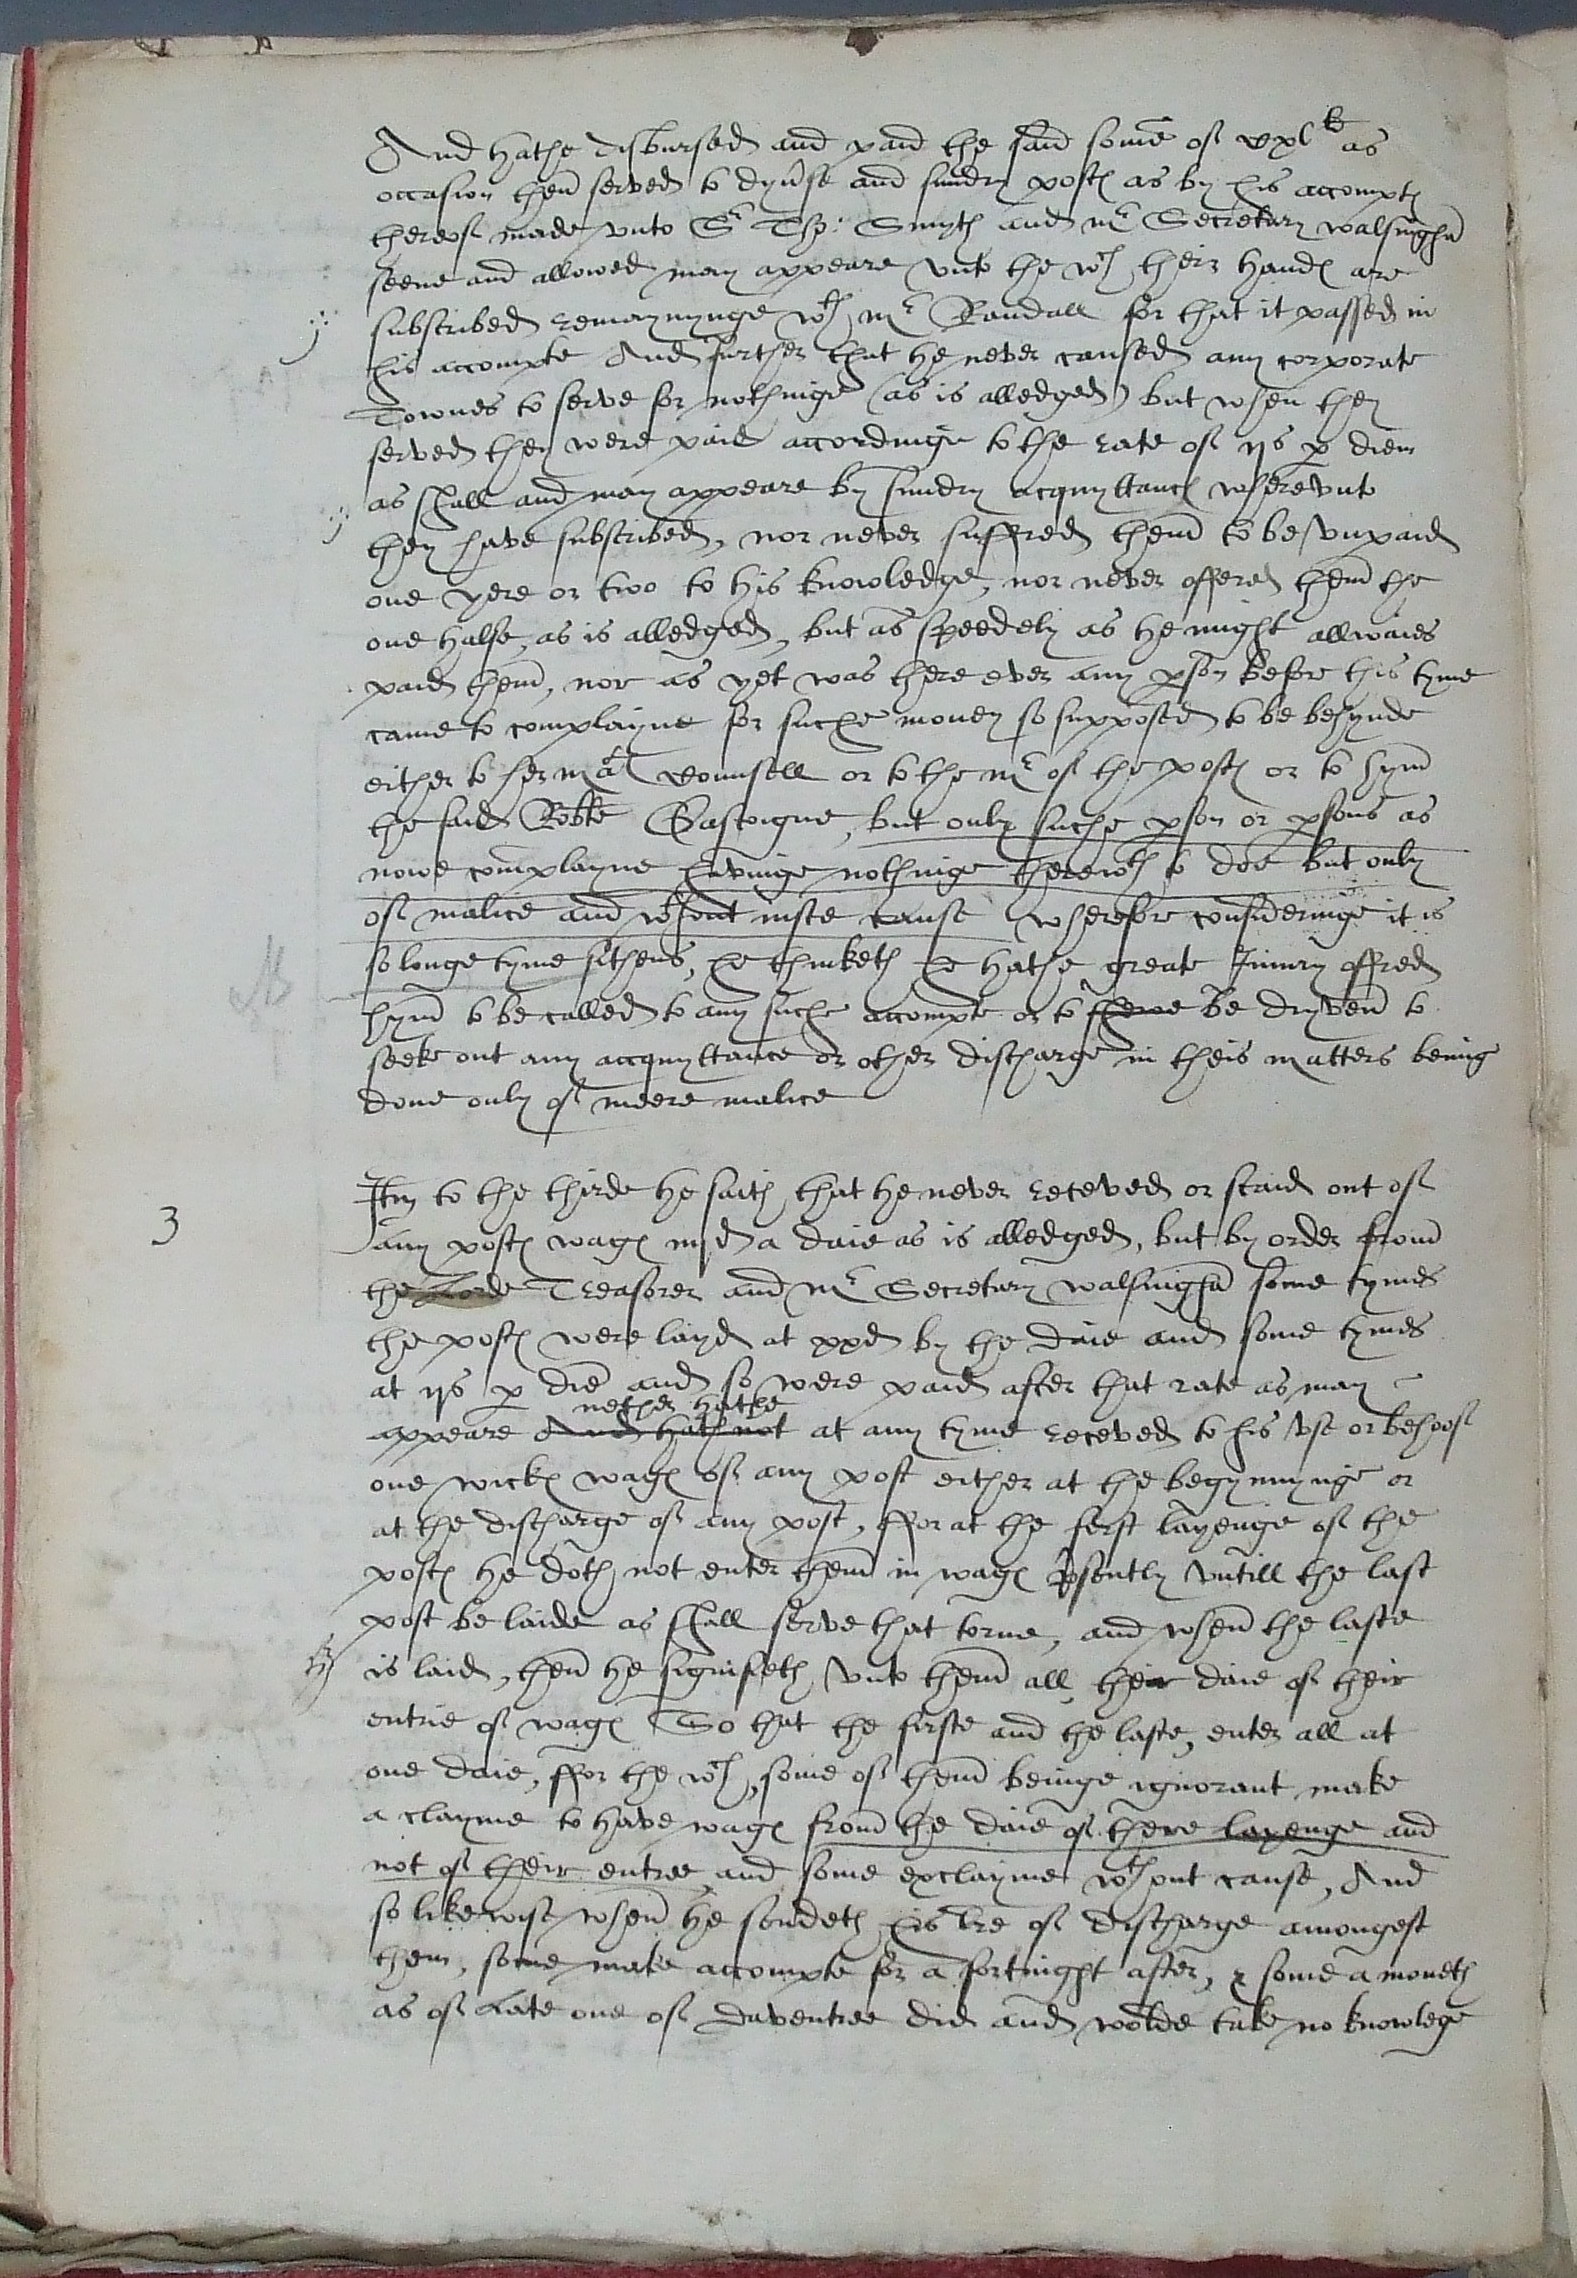 And hathe disbursed and paid the said some of vxxl li as
occasion then served to dyv'se and sundry post as by his accompt
thereof made vnto Sr Tho: Smyth and mr Secretary walsingha
seene and allowed may appeare vnto the wch their hand are
subscribed remaynynge wth mr Randall for that it passed in
his accompte And further that he never caused any corporate
Townes to serve for nothinge (as is alledged) but when they
served they were paid accordinge to the rate of ijs p diem
as shall and may appeare by sundry acquyttanc wherevnto
they have subscribed, nor never suffred them to be vnpaid
one yere or two to his knowledge, nor never offered them the
one halfe, as is alledged, but as speedely as he might allwaies
paid them, nor as yet was there ever any pson before this tyme
came to complayne for suche money so supposed to be behynde
either to her mat Counsell or to the mr of the post or to hym
the said Robte Gascoigne, but only suche pson or psons as
nowe complayne havinge nothinge therewth to doe but only
of malice and wthout iuste cause wherefore consideringe it is
so longe tyme sithens, he thinketh he hathe greate Iniury offred
hym to be called to any suche accompte or to shewe be dryven to
seeke out any acquyttance or other discharge in theis matters being
done only of meere malice
3
Itm to the thirde he saith that he never receved or staid out of
any post wag iiijd a daie as is alledged, but by order from
the Lorde Treasorer and Mr Secretary walsingha some tymes
the post were layd at xxd by the daie and some tymes
at ijs p die and so were paid after that rate as may
nether hathe
appeare And hath not at any tyme receved to his vse or behoof
one wick wag of any post either at the begynnynge or
at the discharge of any post, ffor at the first layenge of the
post he doth not enter them in wag psently vntill the last
post be laide as shall serve that torne, and when the laste
is laid, then he signifieth vnto them all their daie of their
entrie of wag So that the firste and the laste, enter all at
one daie, ffor the wch, some of them beinge ignorant make
a clayme to have wag from the daie of there layenge and
not of their entree and some exclayme wthout cause, And
so likewise when he sendeth his lre of discharge amongest
them, some make accompte for a fortnight after, & some a moneth
as of late one of Daventree did and wolde take no knowlege